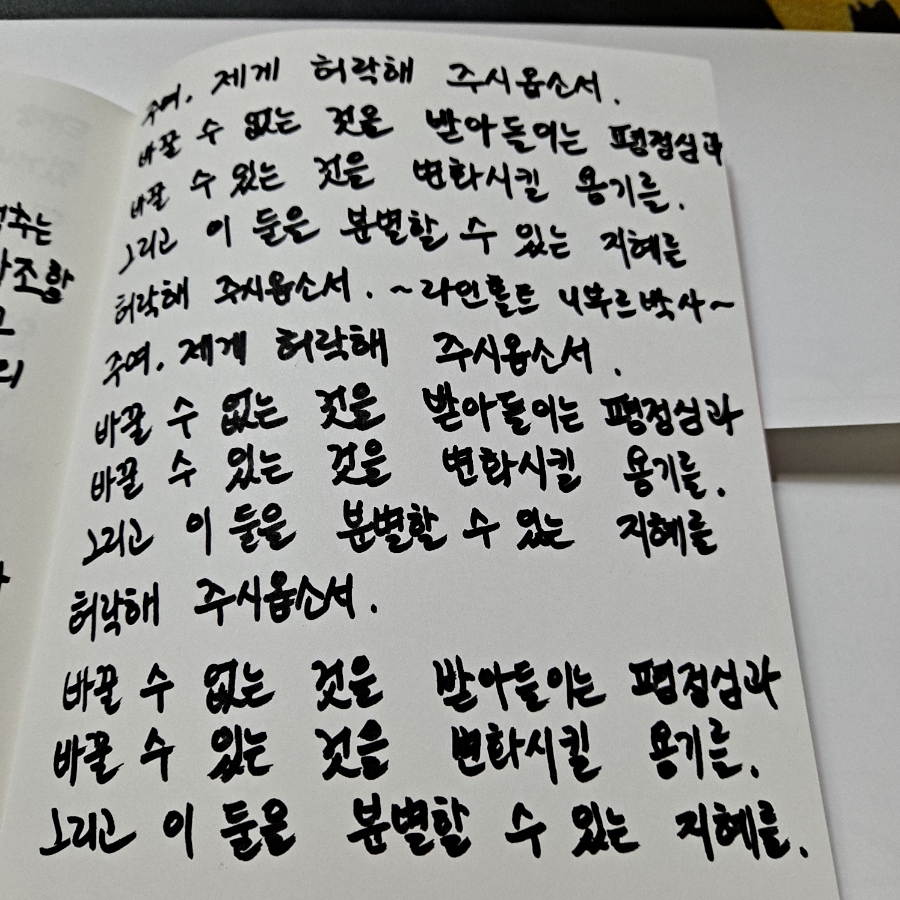 주여. 제게 허락해 주시옵소서.
바꿀 수 없는 것을 받아들이는 평정심과
바꿀 수 있는 것을 변화시킬 용기를.
그리고 이 둘을 분별할 수 있는 지혜를
허락해 주시옵소서. ~라인홀트 니부르박사~
주여. 제게 허락해 주시옵소서.
바꿀 수 없는 것을 받아들이는 평정심과
바꿀 수 있는 것을 변화시킬 용기를.
그리고 이 둘을 분별할 수 있는 지혜를
허락해 주시옵소서.
바꿀 수 없는 것을 받아들이는 평정심과
바꿀 수 있는 것을 변화시킬 용기를.
그리고 이 둘을 분별할 수 있는 지혜를.